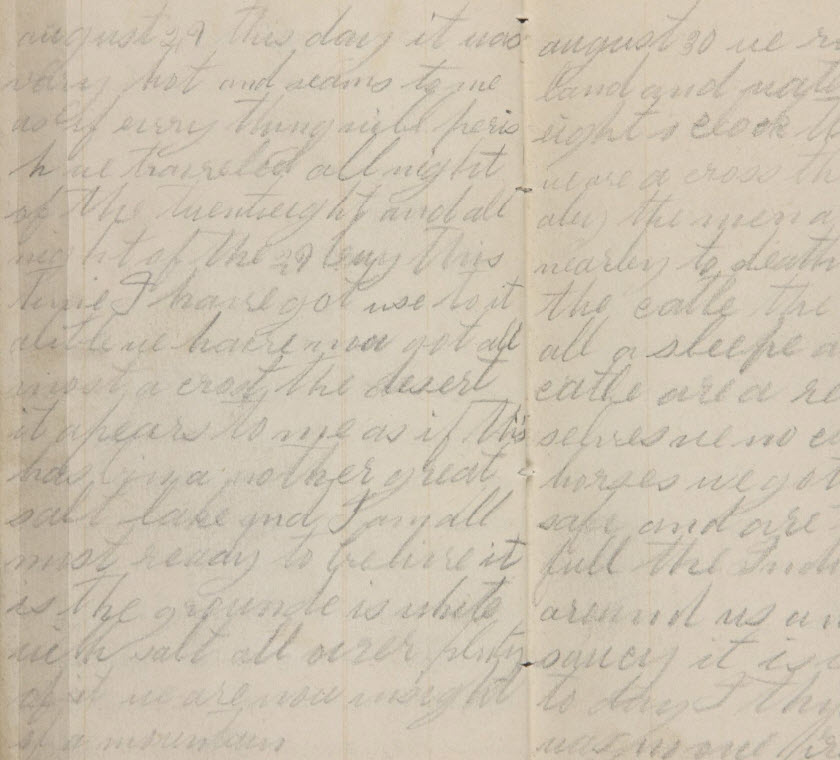 august 29 this day it was
very hot and seams to me
as if every thing will peris
h we traveled all night
of the twenteight and all
night of the 29 buy this
time I have got use to it
alitle we have now got all
most a crost the desert
it apears to me as if this
has in a nother great
salt lake and I am all
most ready to believe it
is the grounde is white
with salt all over plenty
of it we are now insight
of a mountain
august 30 we
land and
eight o clock
we are a cross
the men
nearley to death
the catle the
all a sleepe
catle are a
selves we no
horses we got
safe and are
full the
around us
saucy it is
to day I
was